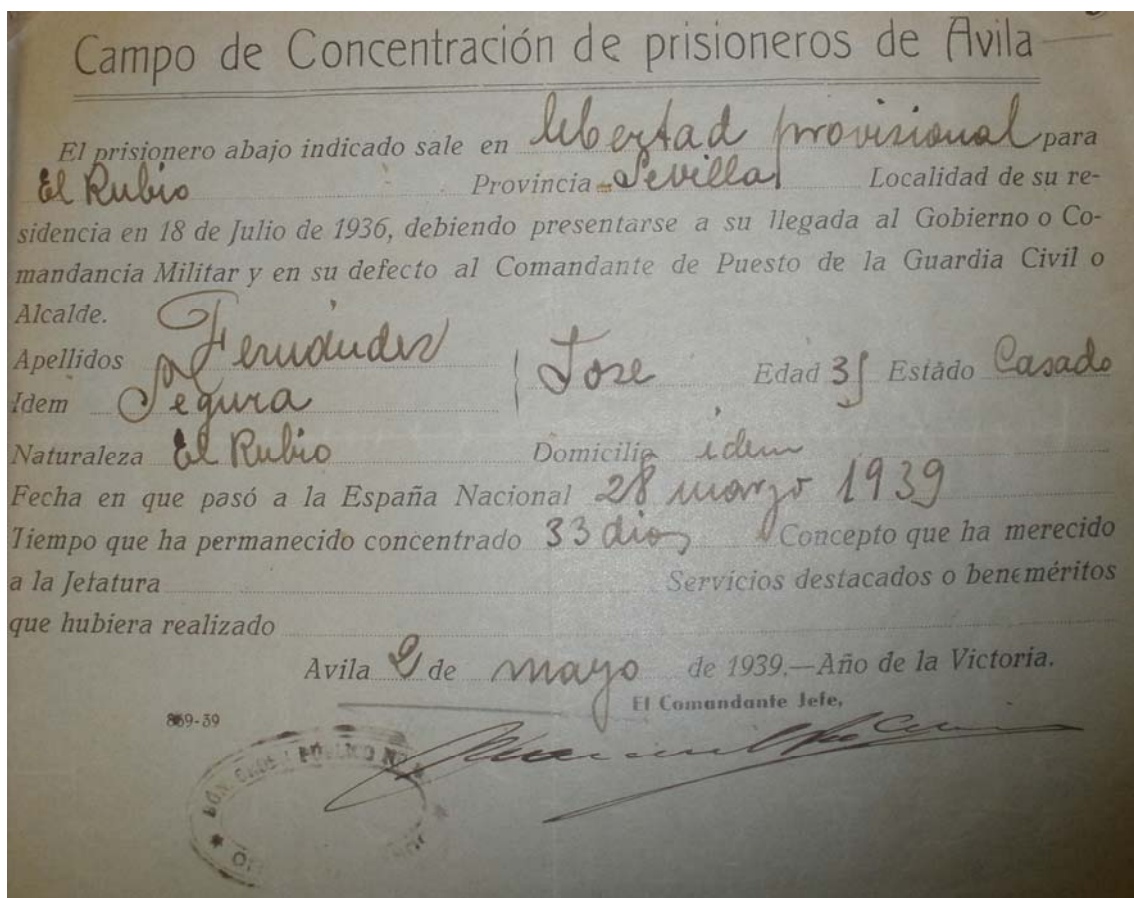 Campo de Concentración de prisioneros de Avila
El prisionero abajo indicado sale en libertad provisional para
El Rubio Provincia Sevilla Localidad de su re-
sidencia en 18 de Julio de 1936, debiendo presentarse a su llegada al Gobierno o Co-
mandancia Militar y en su defecto al Comandante de Puesto de la Guardia Civil o
Alcalde.
Apellidos Fernández
Idem Segura Jose Edad 35 Estado Casado
Naturaleza El Rubio Domicilio idem
Fecha en que pasó a la España Nacional 28 marzo 1939
Tiempo que ha permanecido concentrado 33 dias Concepto que ha merecido
a la Jefatura Servicios destacados o beneméritos
que hubiera realizado
Avila 2 de mayo de 1939.—Año de la Victoria.
El Comandante Jefe,
869-39
PÚBLICO